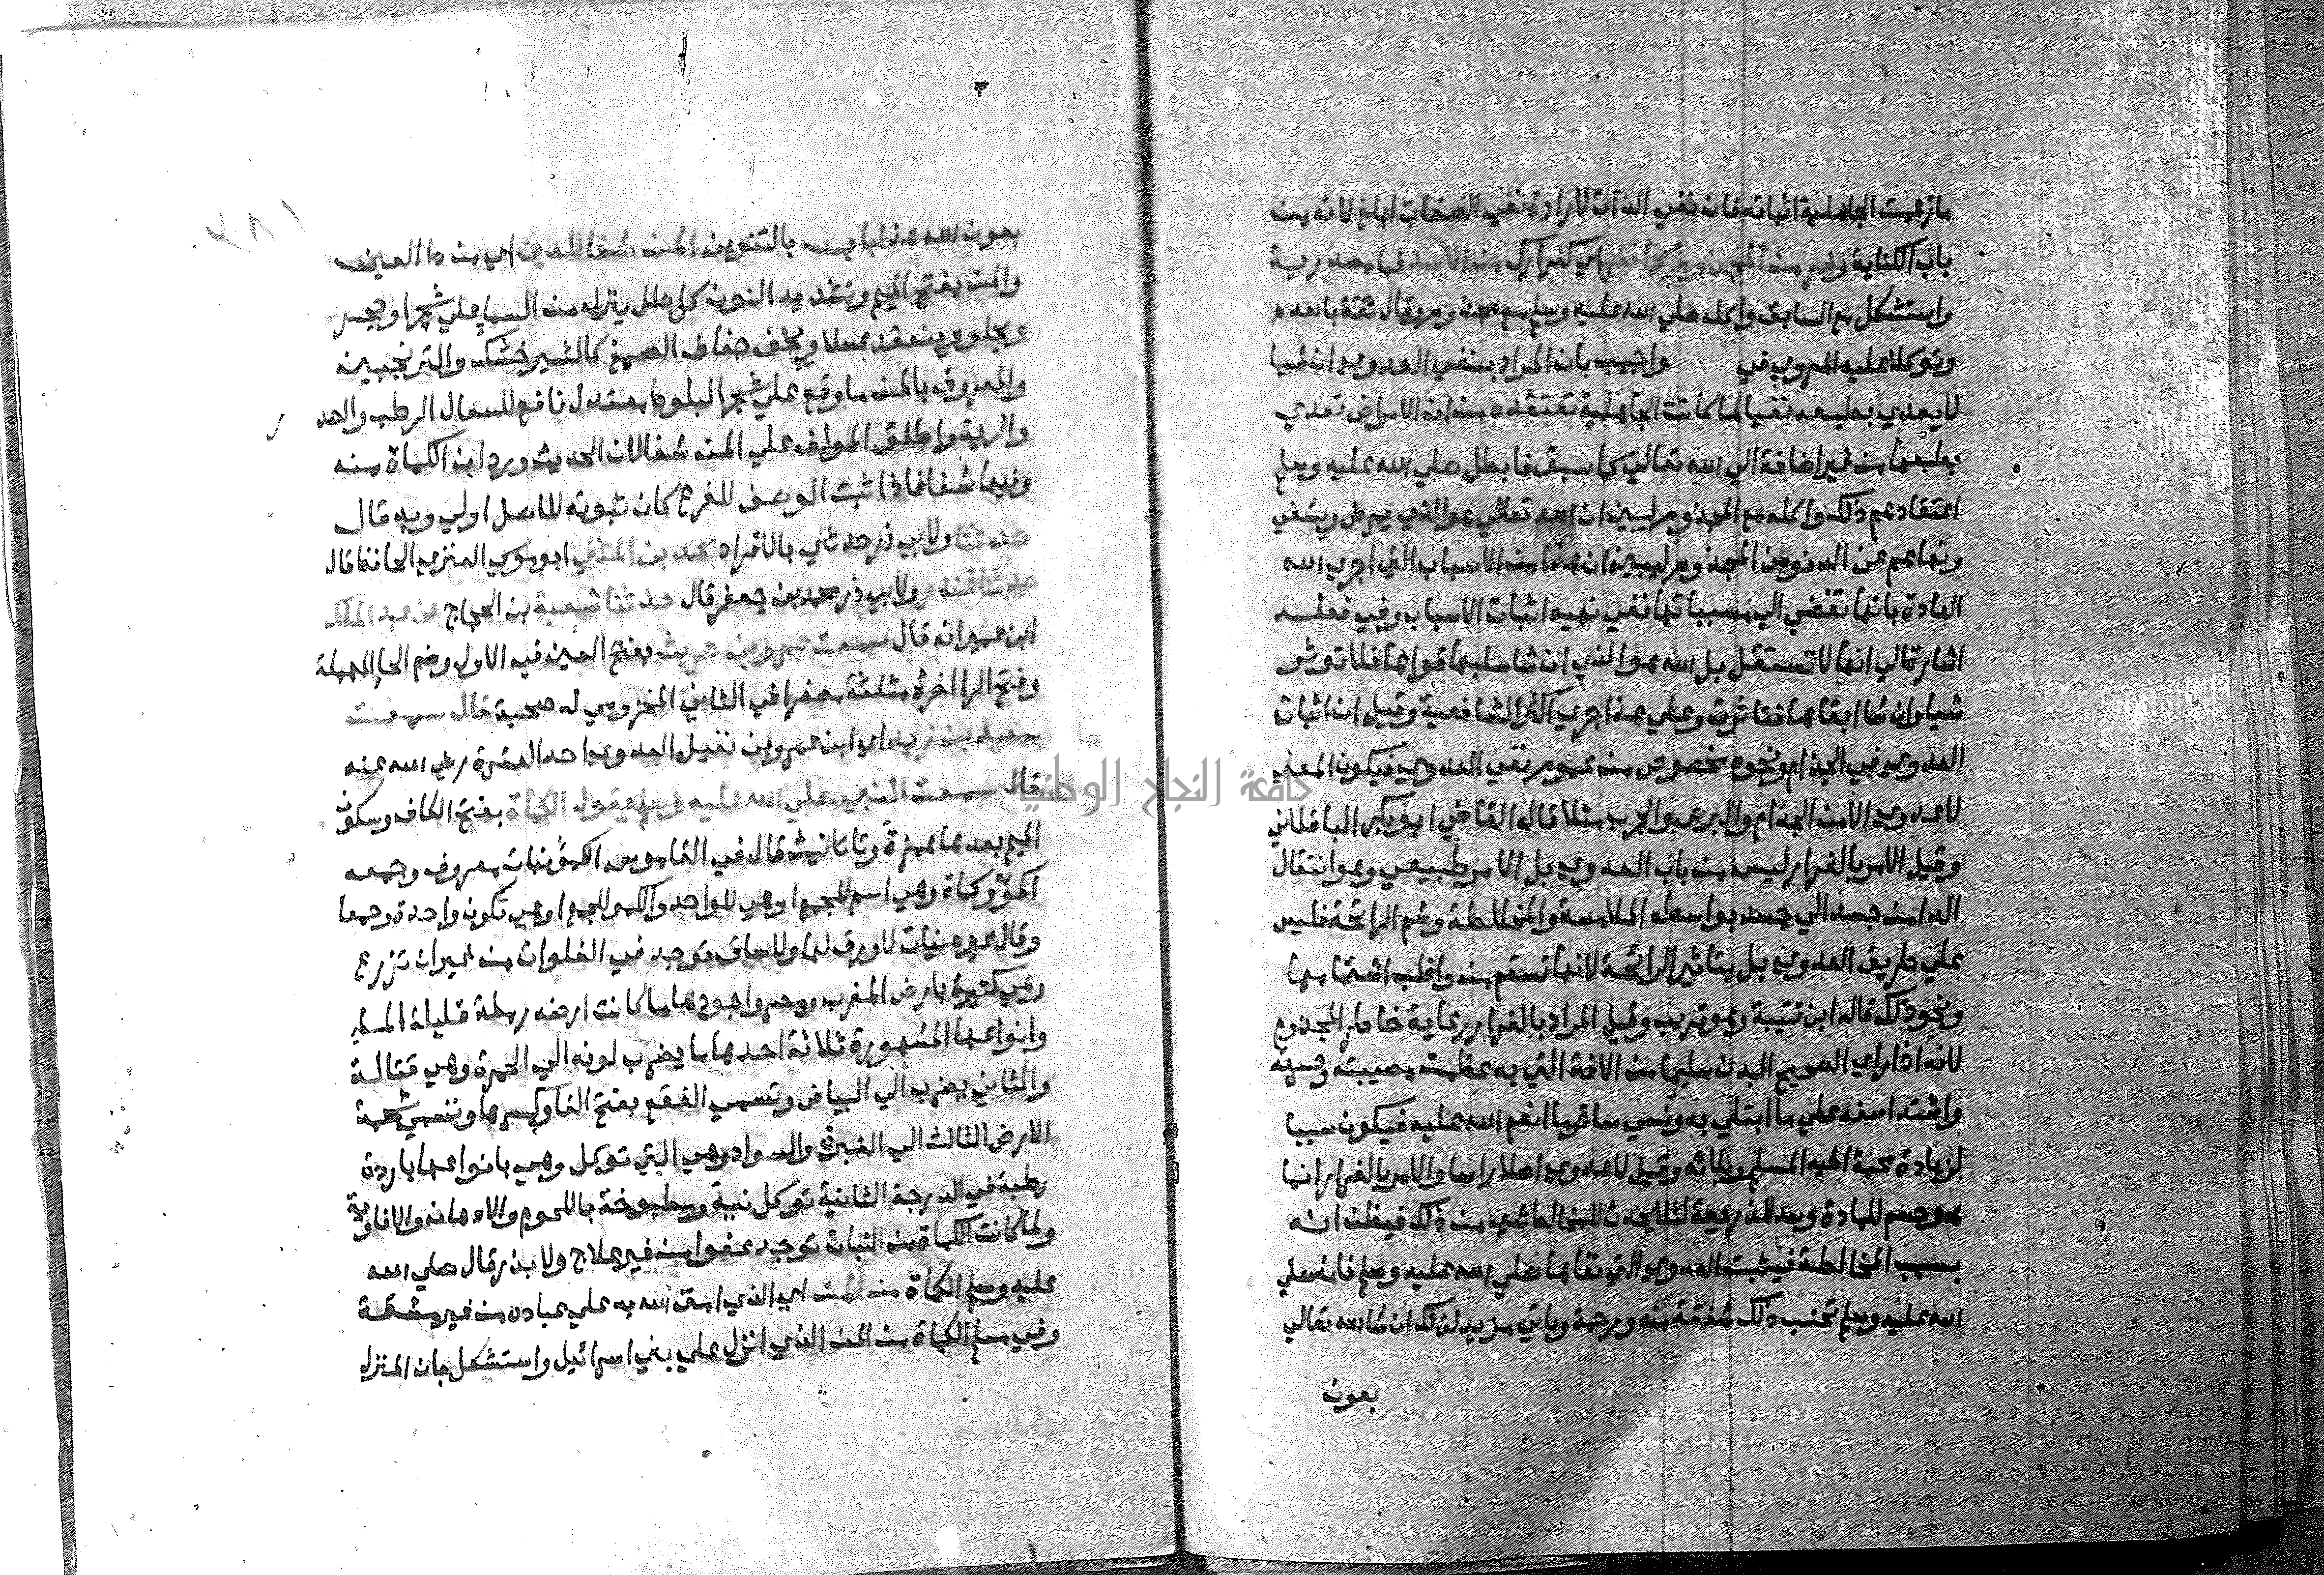 ما زعمت الجاهلية اثباته فان نفي الذات لارادة نفي الصفات ابلغ لانه من
باب الكناية وفر من المجذوم كما تفر اي كفرارك من الاسد فما مصدرية
واستشكل مع السابق واكله صلي الله عليه وسلم مع مجذوم وقال ثقة بالله
وتوكلا عليه المروي في واجيب بان المراد بنفي العدوي ان شيا
لا يعدي بطبعه نفيا لما كانت الجاهلية تعتقده من ان الامراض تعدي
بطبعها من غير اضافة الي الله تعالي كما سبق فابطل صلي الله عليه وسلم
اعتقادهم ذلك واكله مع المجذوم ليبين ان الله تعالي هو الذي يمرض ويشفي
ونهاهم عن الدنو من المجذوم ليبين ان هذا من الاسباب التي اجري الله
العادة بانها تفضي الي مسبباتها ففي نهيه اثبات الاسباب وفي فعله
اشارة الي انها لا تستقل بل الله هو الذي ان شا سلبها قواها فلا توثر
شيا وان شا ابقاها فاثرت وعلي هذا جري اكثر الشافعية وقيل ان اثبات
العدوي في الجذام ونحوه مخصوص من عموم نفي العدوي فيكون المعني
لا عدوي الا من الجذام والبرص والجرب مثلا قاله القاضي ابو بكر الباقلاني
وقيل الامر بالفرار ليس من باب العدوي بل الامر طبيعي وهو انتقال
الدا من جسد الي جسد بواسطة الملامسة والمخالطة وشم الرائحة فليس
علي طريق العدوي بل بتاثير الرائحة لانها تسقم من واظب اشتمامها
ونحو ذلك قاله ابن قتيبة وهو قريب وقيل المراد بالفرار رعاية خاطر المجذوم
لانه اذا راي الصحيح البدن سليما من الافة التي به عظمت مصيبته وحسرته
واشتد اسفه علي ما ابتلي به ونسي سائر ما انعم الله عليه فيكون سببا
لزيادة محنة اخيه المسلم وبلائه وقيل لا عدوي اصلا راسا والامر بالفرار انما
هو حسم للمادة وسد للذريعة لئلا يحدث للمخالط شي من ذلك فيظن انه
بسبب المخالطة فيثبت العدوي التي نفاها صلي الله عليه وسلم فامر صلي
الله عليه وسلم بتجنب ذلك شفقة منه ورحمة وياتي مزيد لذلك ان شا الله تعالي
بعون
بعون الله هذا باب بالتنوين المن شفا للعين اي من دا العين
والمن بفتح الميم وتشديد النون كل طل ينزل من السما علي شجر او حجر
ويحلو وينعقد عسلا ويجف جفاف الصمغ كالشيرخشك والترنجبين
والمعروف بالمن ما وقع علي شجر البلوط معتدل نافع للسعال الرطب والصدر
والرية واطلق المولف علي المن شفا لان الحديث ورد ان الكماة منه
وفيها شفا فاذا ثبت الوصف للفرع كان ثبوته للاصل اولي وبه قال
حدثنا ولابي ذر حدثني بالافراد محمد بن المثني ابو موسي العنزي الحافظ قال
حدثنا غندر ولابي ذر محمد بن جعفر قال حدثنا شعبة بن الحجاج عن عبد الملك
ابن عمير انه قال سمعت عمرو بن حريث بفتح العين في الاول وضم الحا المهملة
وفتح الرا اخره مثلثة مصغرا في الثاني المخزومي له صحبة قال سمعت
سعيد بن زيد اي ابن عمرو بن نفيل العدوي احد العشرة رضي الله عنه
قال سمعت النبي صلي الله عليه وسلم يقول الكماة بفتح الكاف وسكون
الميم بعدها همزة وتا تانيث قال في القاموس الكمؤ نبات معروف وجمعه
اكمؤ وكماة وهي اسم للجمع او هي للواحد والكمو للجمع او هي تكون واحدة وجمعا
وقال غيره نبات لا ورق لها ولا ساق توجد في الفلوات من غير ان تزرع
وهي كثيرة بارض المغرب ومصر واجودها ما كانت ارضه رملة قليلة الما
وانواعها المشهورة ثلاثة احدها ما يضرب لونه الي الحمرة وهي قتالة
والثاني يضرب الي البياض وتسمي الفقع بفتح الفا وكسرها وتسمي شحمة
الارض الثالث الي الغبرة والسواد وهي التي توكل وهي بانواعها باردة
رطبة في الدرجة الثانية توكل نية ومطبوخة باللحوم والادهان والافاوية
ولما كانت الكماة من النبات توجد عفوا من غير علاج ولا بذر قال صلي الله
عليه وسلم الكماة من المن اي الذي امتن الله به علي عباده من غير مشقة
وفي مسلم الكماة من المن الذي انزل علي بني اسرائيل واستشكل بان المنزل
جامعة النجاح الوطنية